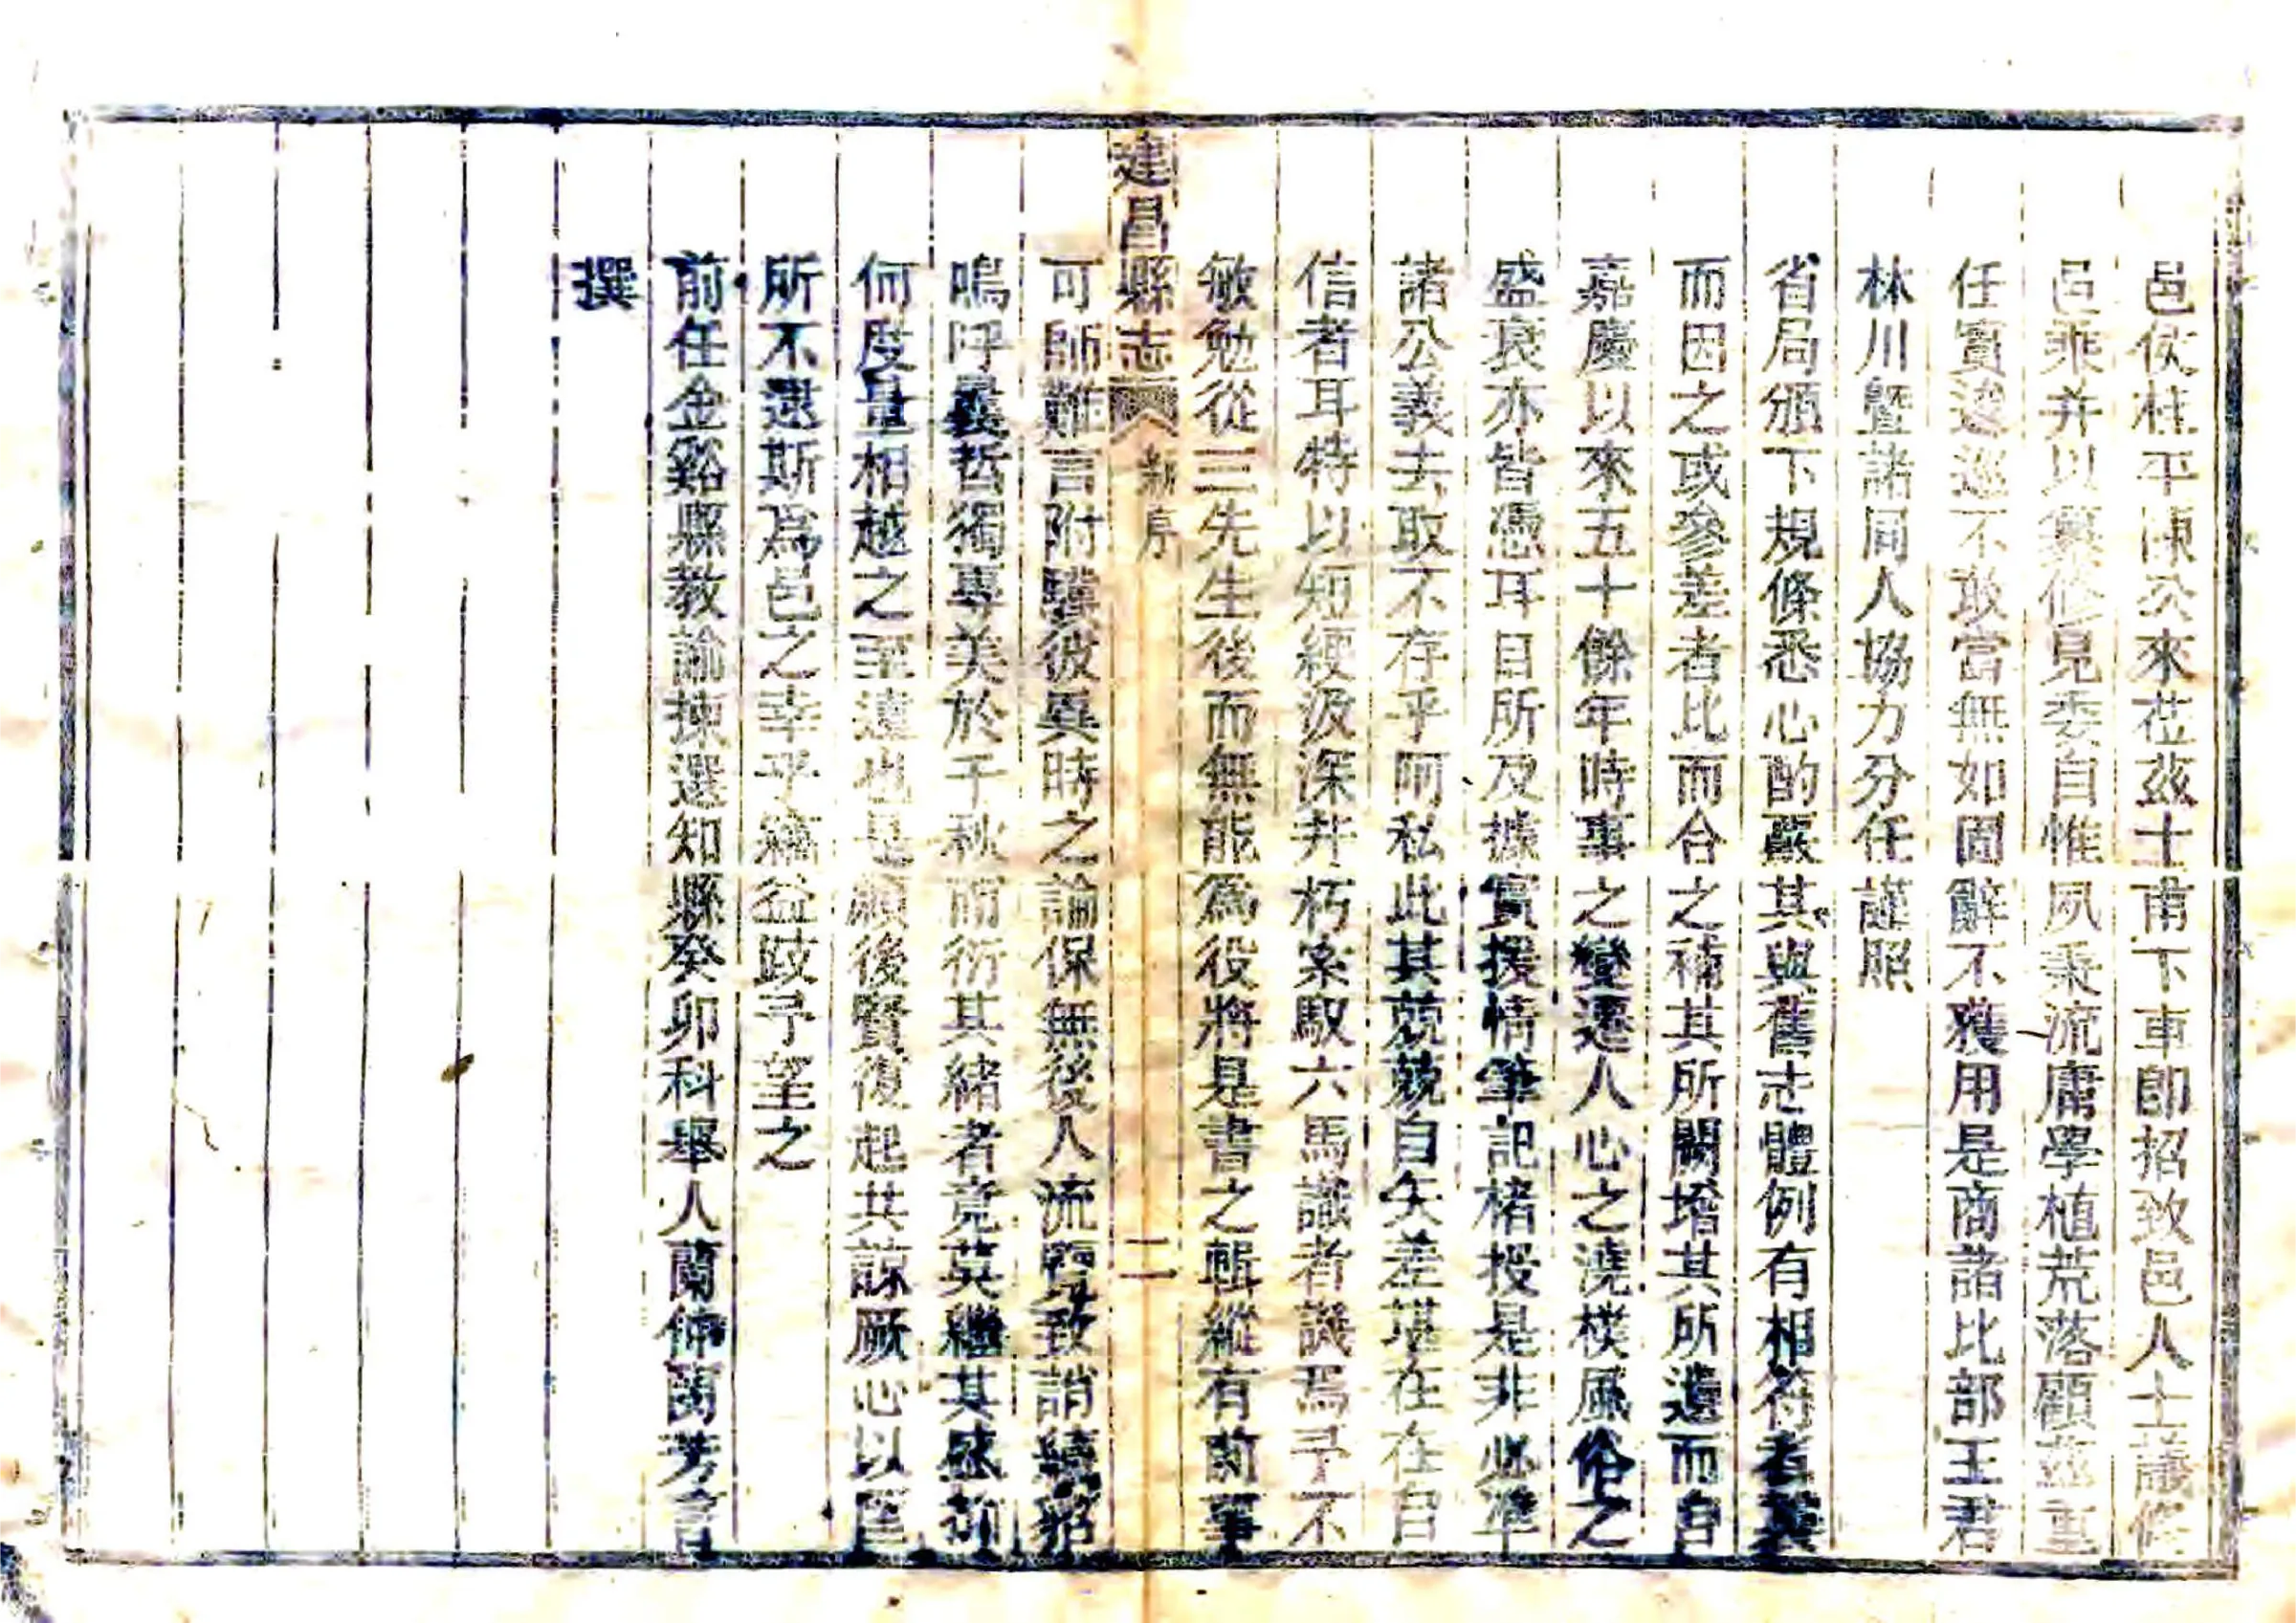 邑侯桂平陳公來莅茲土甫下車卽招致邑人士議修
邑乘并以纂修見委自惟夙秉流庸學植荒落顧茲重
任實逡巡不敢當無如固辭不獲用是商諸比部王君
林川曁諸同人協力分任謹照
省局頒下規條悉心酌嚴其與舊志體例有相符者襲
而因之或參差者比而合之補其所闕增其所遺而自
嘉慶以來五十餘年時事之變遷人心之澆樸風俗之
盛衰亦皆憑耳目所及據實援情筆記楮投是非必準
諸公義去取不存乎阿私此其兢兢自矢差堪在在自
信者耳特以短綆汲深井朽索馭六馬識者譏焉予不
敏勉從三先生後而無能爲役將是書之輯縱有前軰
建昌縣志 新序 二
可師難言附驥彼異時之論保無後人流覽致誚續貂
嗚呼曩哲獨專美於千秋而衍其緒者竟莫繼其盛前
何度量相越之至遠也是願後賢復起共諒厥心以匡
所不逮斯爲邑之幸乎竊益跂予望之
前任金谿縣教諭揀選知縣癸卯科舉人蘭仲芳言
撰